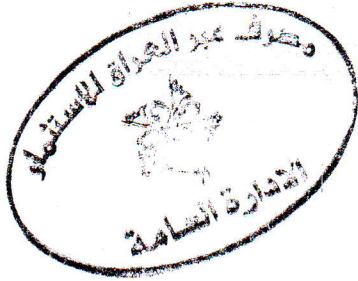 مصرف عبر العراق للإستثمار
الادارة العامة